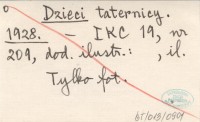 Dzieci taternicy.
1928. – IKC 19, nr
209, dod. ilustr.: , il.
Tylko fot.
bT/013/0901